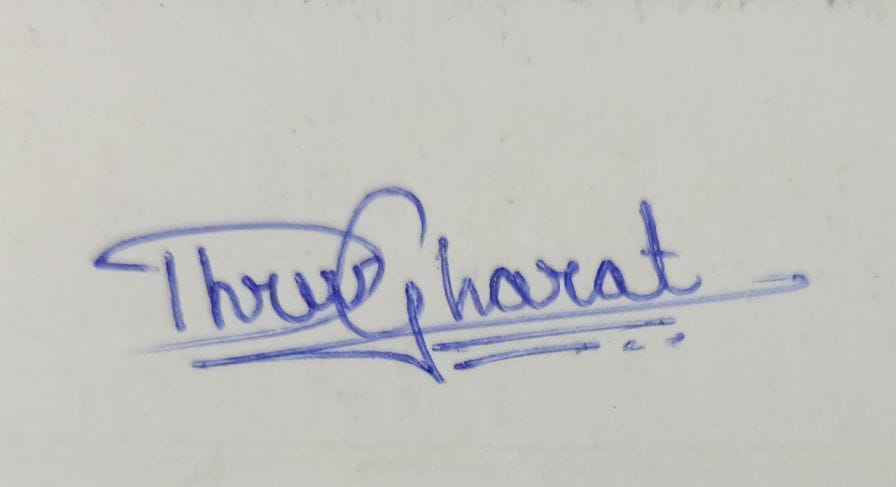 Dhruv Gharat